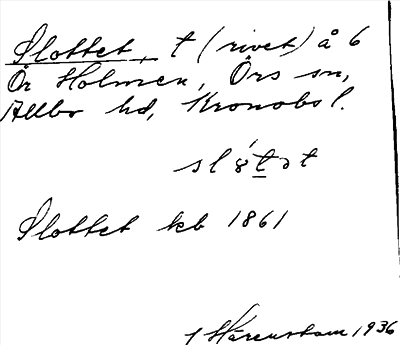 Slottet, t (rivet) å 6
Ör Holmen, Örs sn,
Allbo hd, Kronobs l.
slo̍t̲ət
Slottet kb 1861
J Härenstam 1936